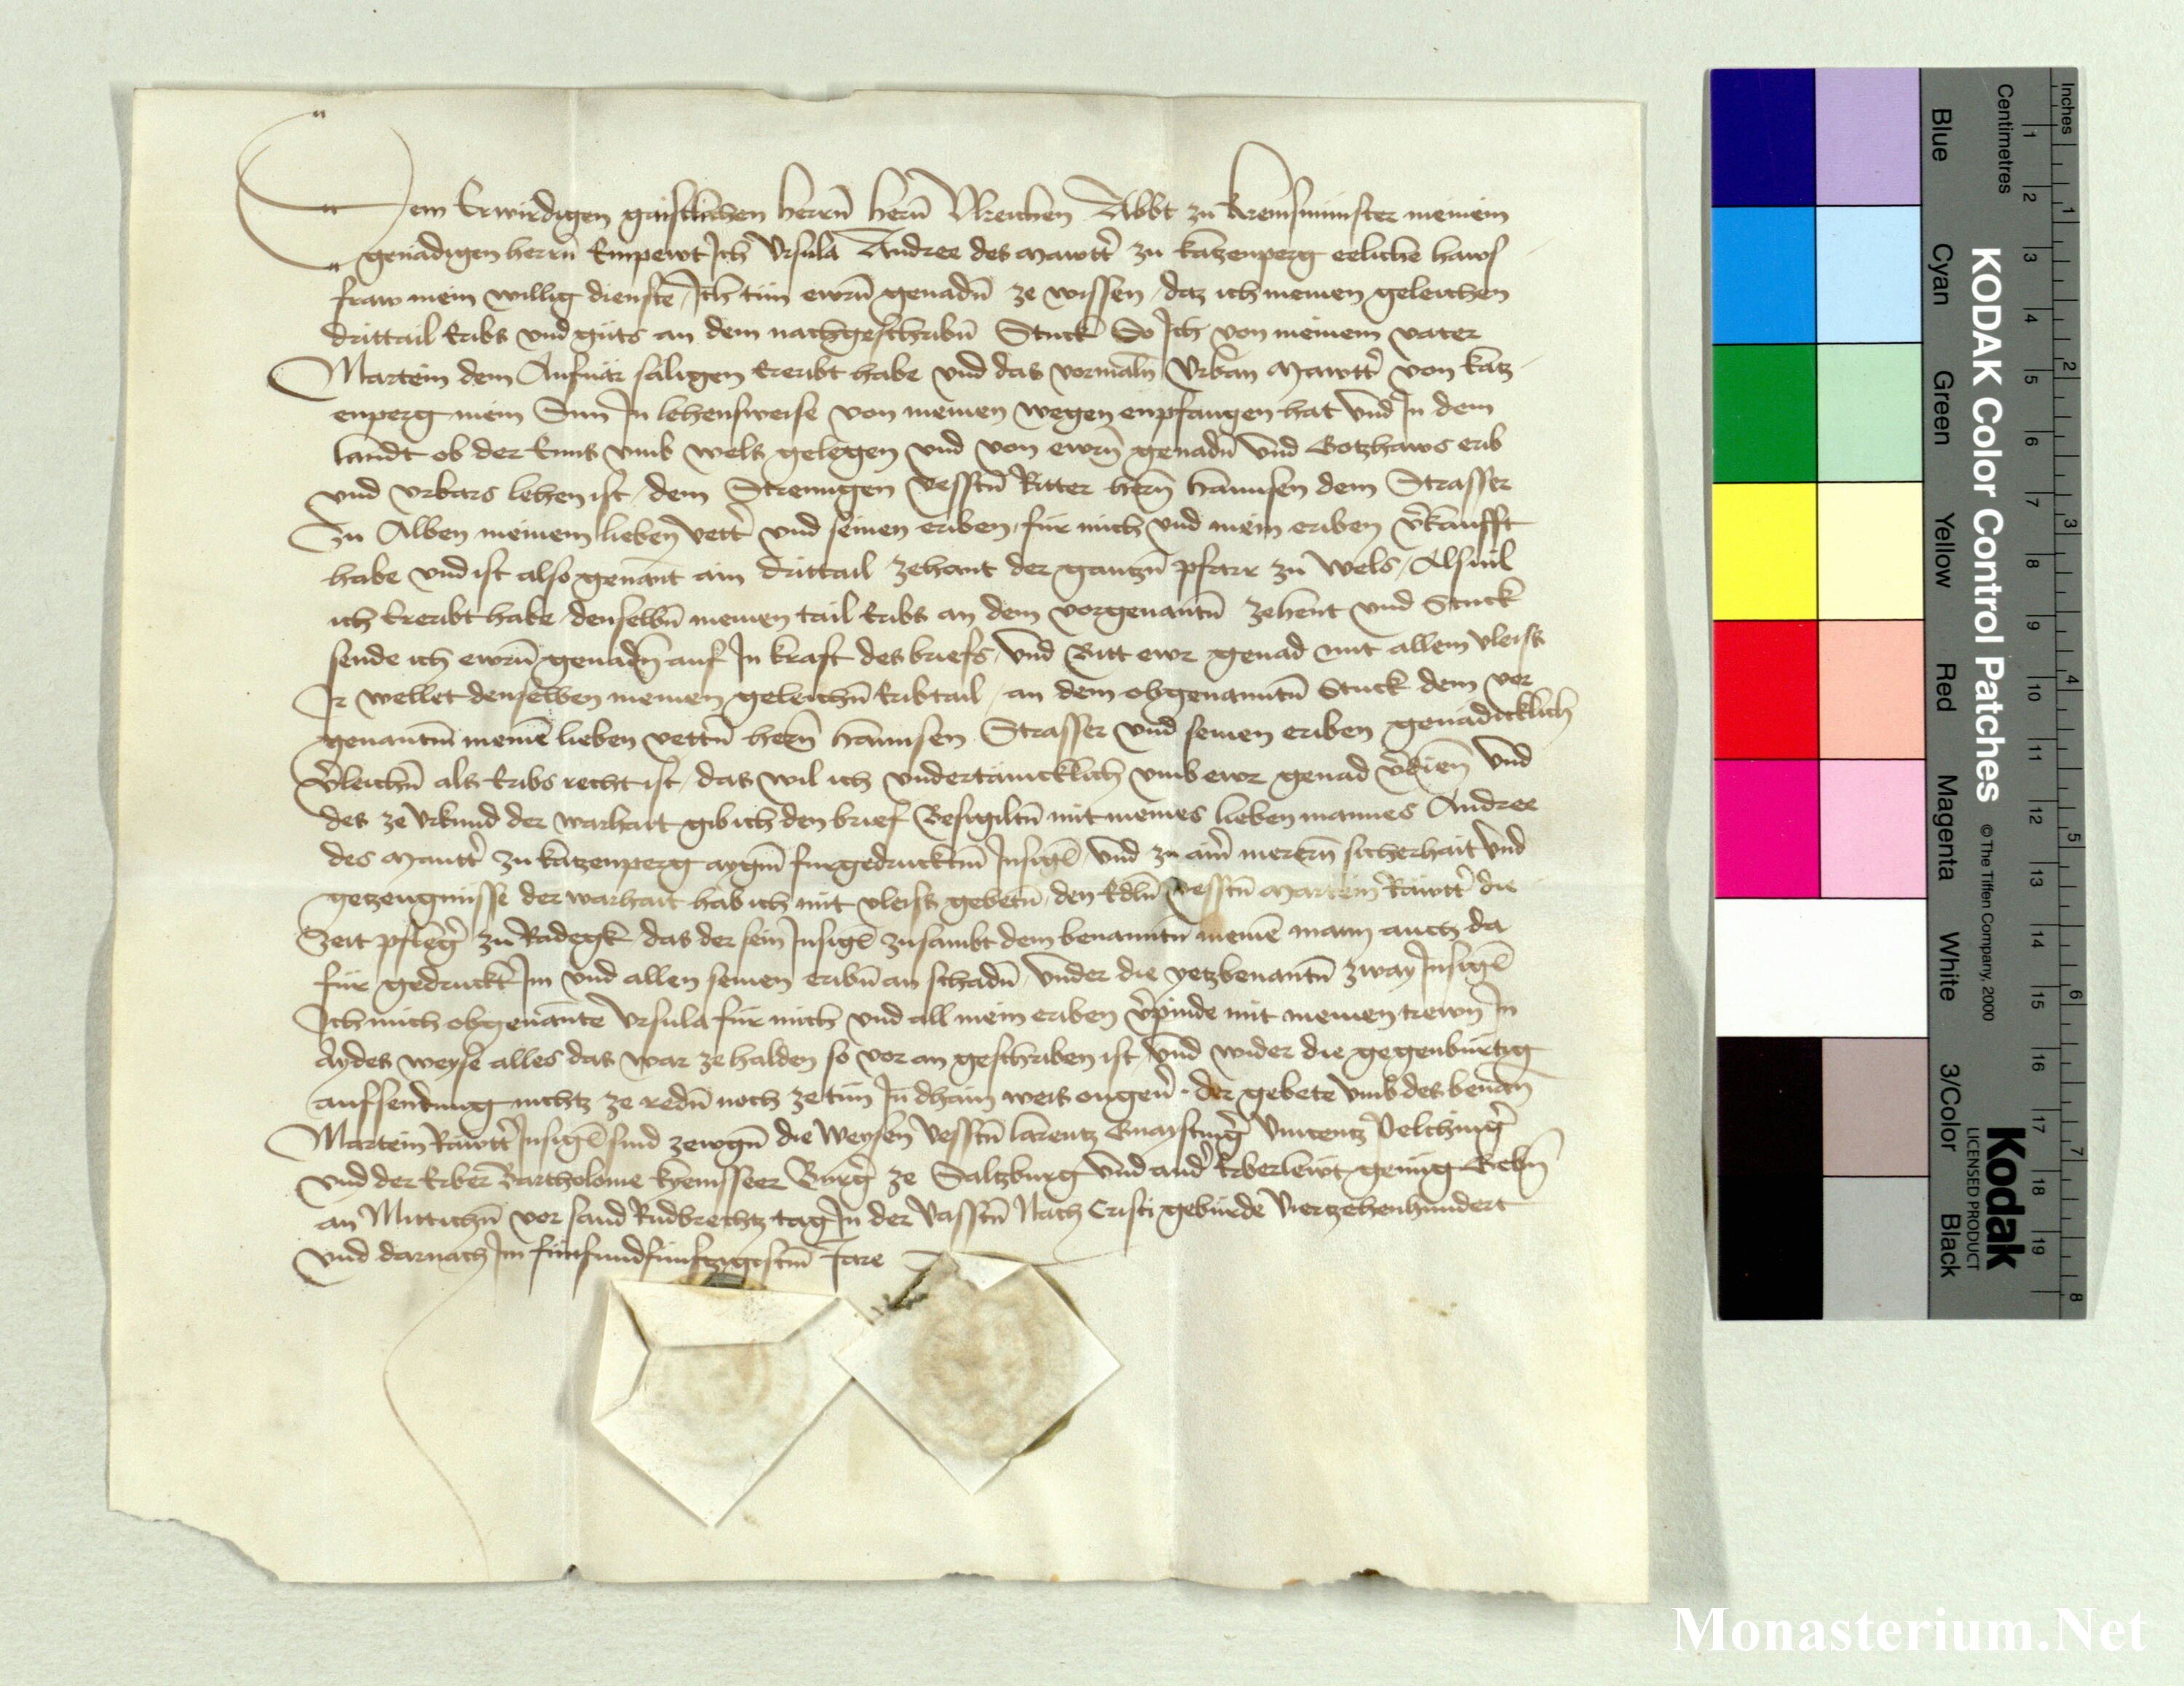 Dem Erwirdigen gaistlichen herrn̄ hern̄ Vlreichen Abbt zu Kremsmünster meinem
genädigen herrn̄ Empewt Ich Vrsula Andree des Mawtt̉ zu Katzenperg eeliche haws
fraw mein willig dienste, Ich tün ewrn̄ genadn̄ ze wissen, daz ich meinen geleichen
drittail Erbs vnd güts an dem nachgeschribn̄ Stuck So Ich von meinem vater
Martein dem säligen Ereribt habe vnd das vormaln̄ Vrban Mawtt̉ von Katz
enperg mein Sun In lehensweise von meinen wegen enpfangen hat Vnd In dem
landt ob der Enns vmb wels gelegen vnd von ewrn̄ genadn̄ vnd Gotzhaws erib
vnd vrbars lehen ist, dem Strenngen Vesstn̄ Ritter hern̄ hannsen dem Strasser
Zu Alben meinem lieben vett̉ vnd seinen eriben, für mich vnd mein eriben v̉kaufft
habe vnd ist also genant ain drittail zehent der gantzn̄ pfarr zu Wels, Alsuil
ich Ereribt habe, denselbn̄ meinen tail Eribs an dem vorgenantn̄ zehent vnd Stuck
sende ich ewrn̄ genadn̄ auf In kraft des briefs, Vnd Bitt ewr genad mit allem vleiss
Ir wellet denselben meinen geleichn̄ Eribtail, an dem obgenanntn̄ Stuck dem vor
genantn̄ meinē lieben vettn̄ hern̄ hannsen Strasser vnd seinen eriben genädicklich
v̉leichn̄ als Eribs recht ist, das wil ich vndertänicklich vmb ewr genad v̉dien̄ Vnd
des ze Vrkund der warhait gib ich den brief Besigiltn̄ mit meines lieben mannes Andree
des Mautt̉ zu Katzenperg aygn̄ furgedrucktm̄ Insigl̄, Vnd zu aim̉ merern̄ sicherhait Vnd
getzeugnüsse der warhait hab ich mit vleiss gebetn̄, den Edln̄ Vesstn̄ Martein Räwtt̉ die
Zeit pfleg̉ zu Radegk, das der sein Insigl̄ zusambt dem benanntn̄ meinē mann auch da
für gedruckt Im vnd allen seinen eribn̄ an schadn̄, Vnder die yetzbenantn̄ zway Insigl̄
Ich mich obgenante Vrsula für mich vnd all mein eriben v̉pinde mit meinen trewn̄ In
aydes weyse alles das war ze halden so vor an geschriben ist, Vnd wider die gegenbürtig
aufsendung nichtz ze redn̄ noch ze tün In dhain weis ongeu̇̉. der gebete vmb des benan̄
Martein Räwtt̉ Insigl̄ sind zewgn̄ die Weysen Vesstn̄ larentz Vincentz
vnd der Erber̄ Bartholome Burg̉ ze Saltzburg Vnd and̉ Erberlewt genüg Gebn̄
an Mittichn̄ vor sand Rudbrechtz tag In der Vasstn̄ Nach Cristi gebürde Vierzehenhundert
vnd darnach Im fünfundfünftzigistm̄ Jare
KODAK Color Control Patches © The Tiffen Company, 2000 Kodak LICENSED PRODUCT
Inches 1 2 3 4 5 6 7 8
Centimetres 1 2 3 4 5 6 7 8 9 10 11 12 13 14 15 16 17 18 19
Blue Cyan Green Yellow Red Magenta White 3/Color Black
Monasterium.Net